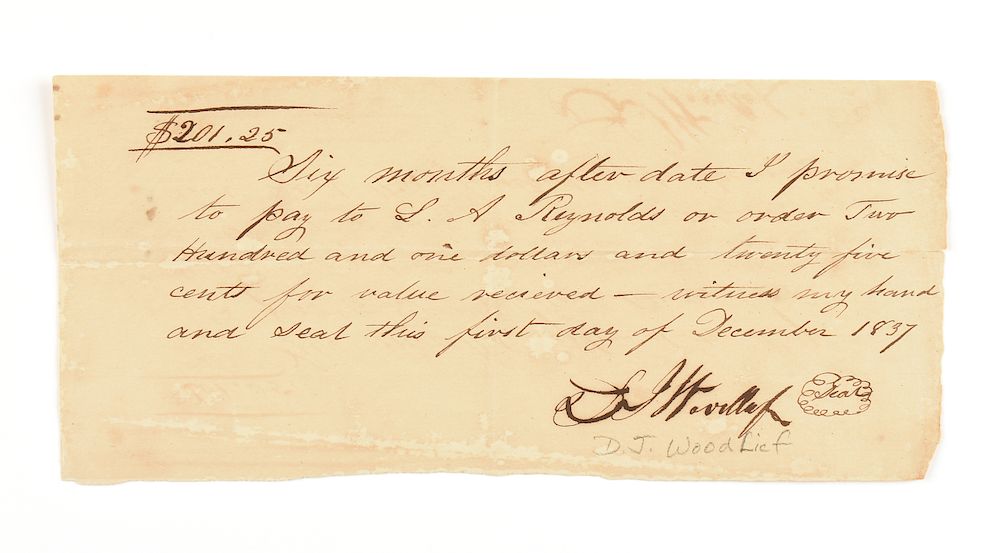 $201.25
Six months after date I promise
to pay to L. A Reynolds or order Two
Hundred and one dollars and twenty five
cents for value recieved — witness my hand
and seal this first day of December 1837
D J Woodlief Seal
D.J. WoodLief